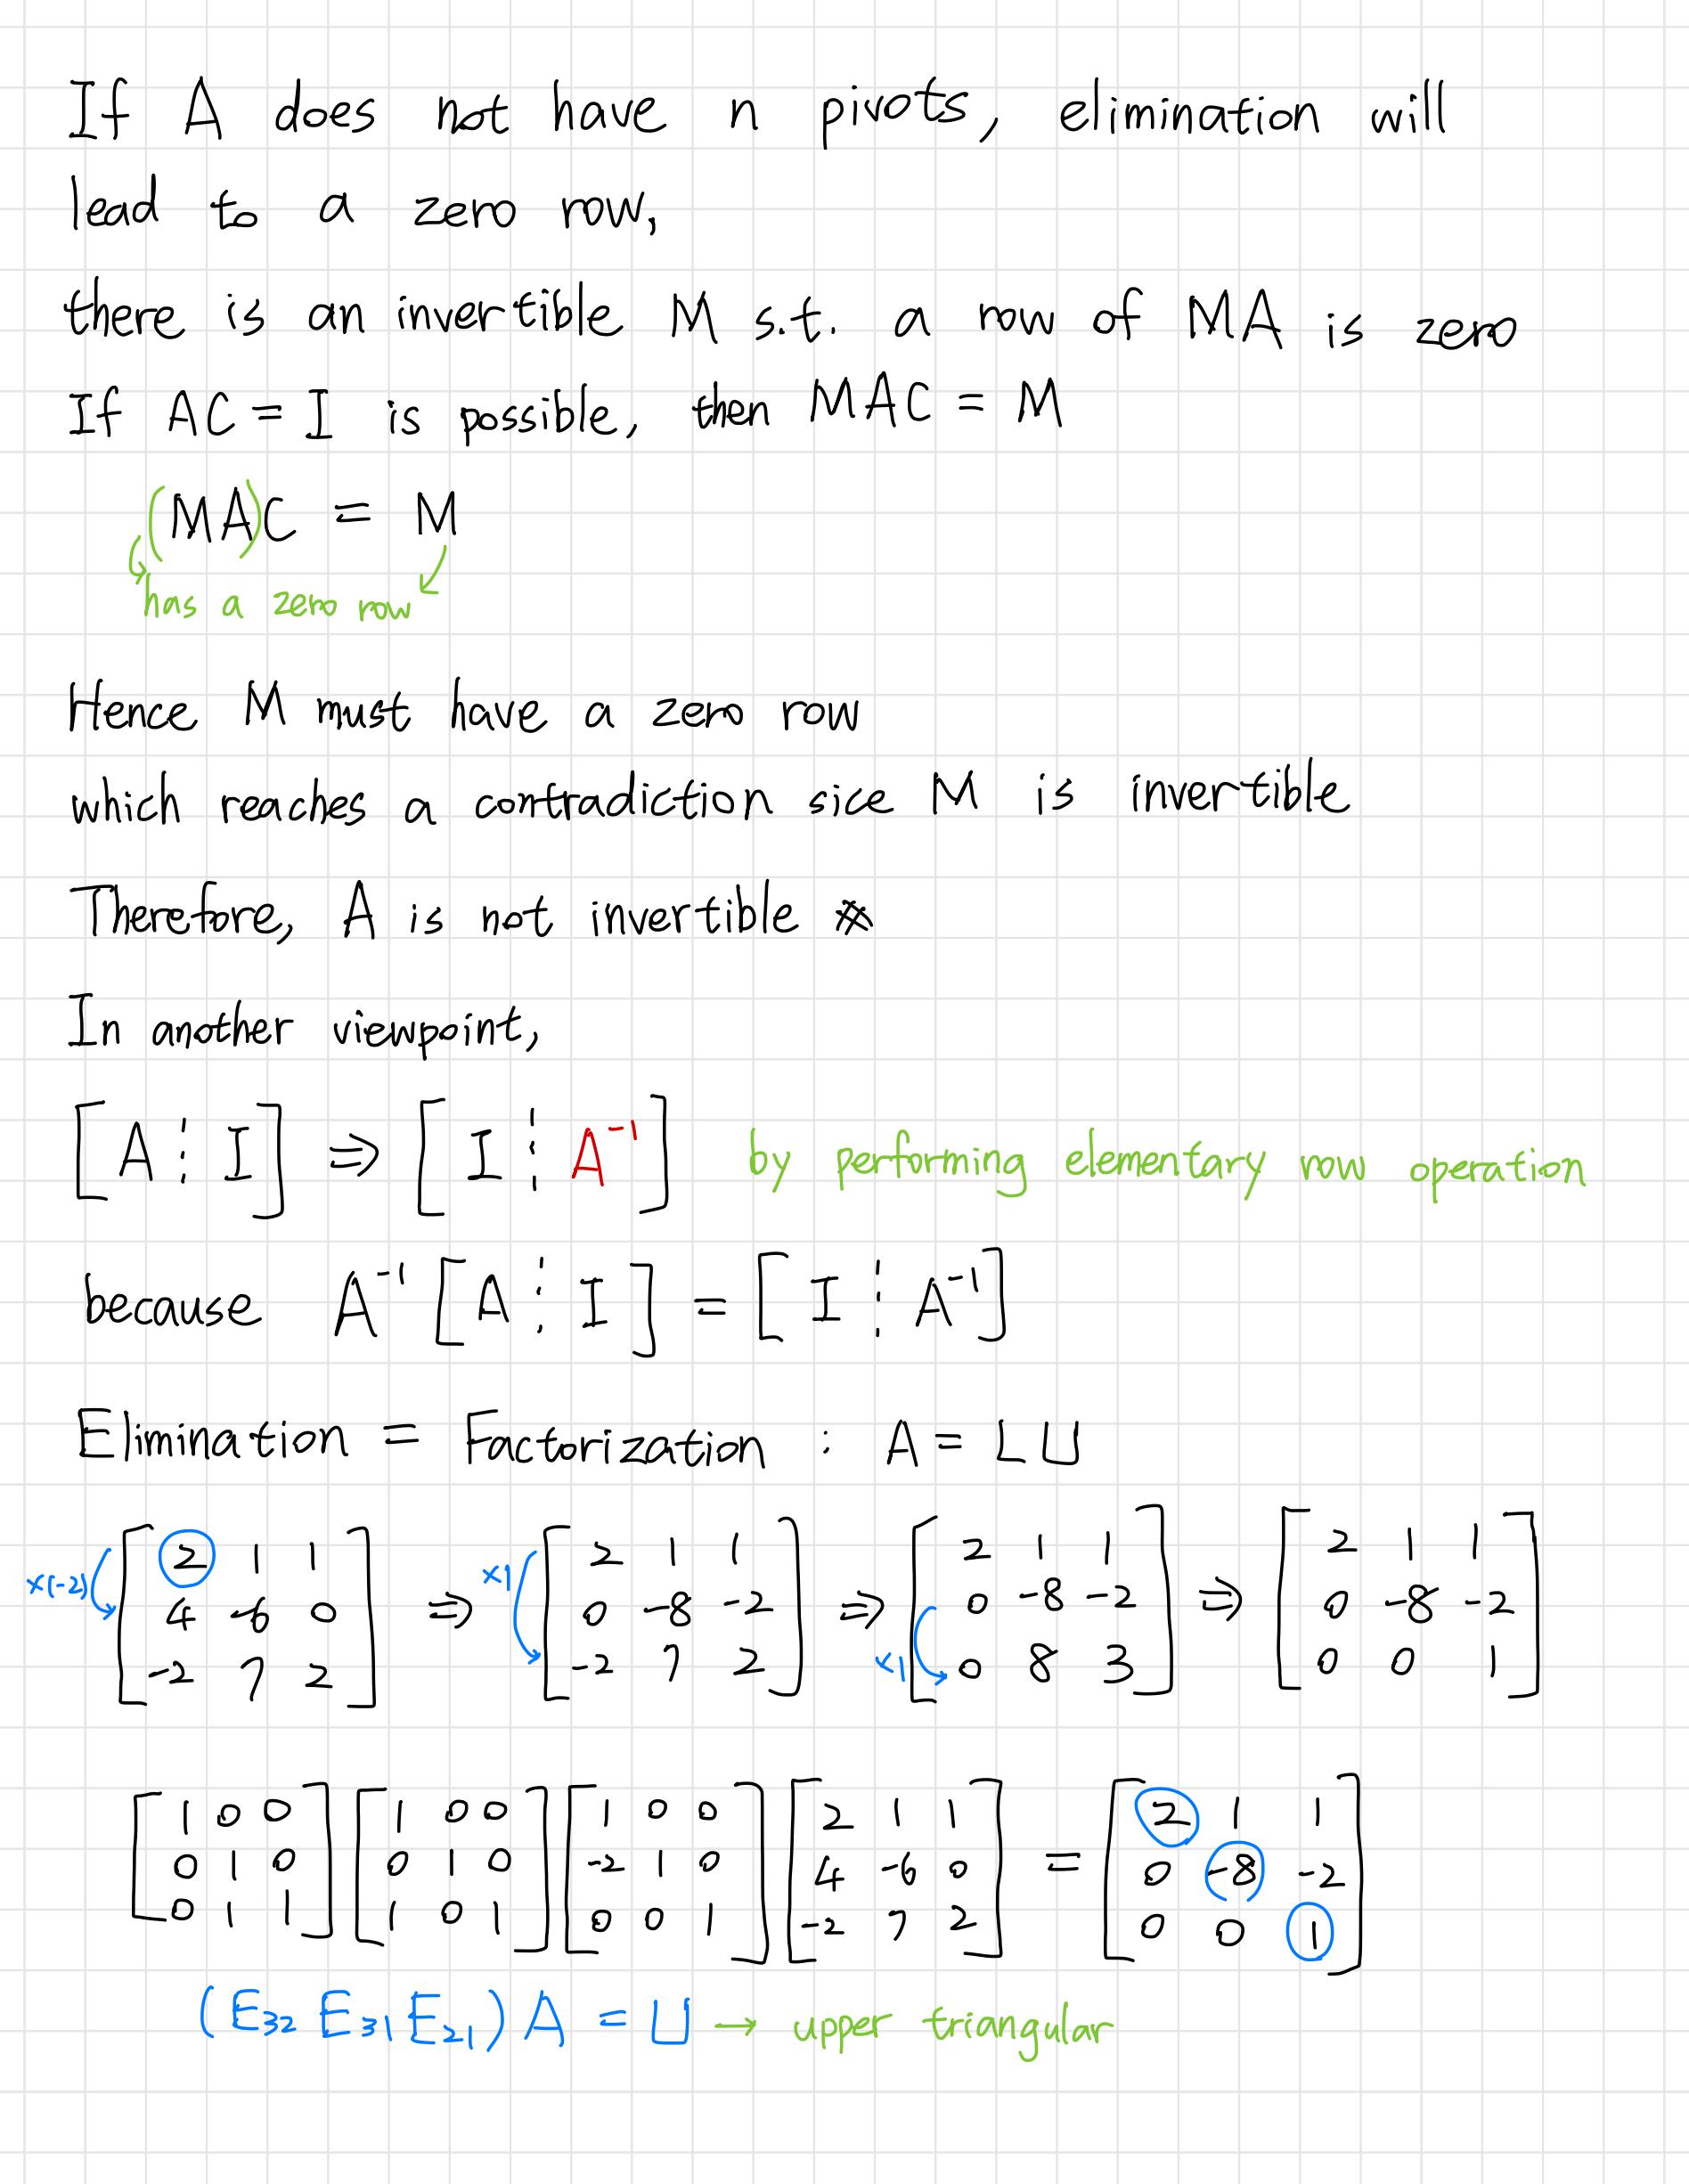 If A does not have n pivots, elimination will
lead to a zero row,
there is an invertible M s.t. a row of MA is zero
If AC = I is possible, then MAC = M
(MA)C = M
has a zero row
Hence M must have a zero row
which reaches a contradiction sice M is invertible
Therefore, A is not invertible ※
In another viewpoint,
[A ⋮ I] ⇒ [I ⋮ A⁻¹] by performing elementary row operation
because A⁻¹[A ⋮ I] = [I ⋮ A⁻¹]
Elimination = Factorization : A = LU
×(-2) [2 1 1; 4 -6 0; -2 7 2] ⇒ ×1 [2 1 1; 0 -8 -2; -2 7 2] ⇒ ×1 [2 1 1; 0 -8 -2; 0 8 3] ⇒ [2 1 1; 0 -8 -2; 0 0 1]
[1 0 0; 0 1 0; 0 1 1] [1 0 0; 0 1 0; 1 0 1] [1 0 0; -2 1 0; 0 0 1] [2 1 1; 4 -6 0; -2 7 2] = [2 1 1; 0 -8 -2; 0 0 1]
(E₃₂ E₃₁ E₂₁) A = U → upper triangular